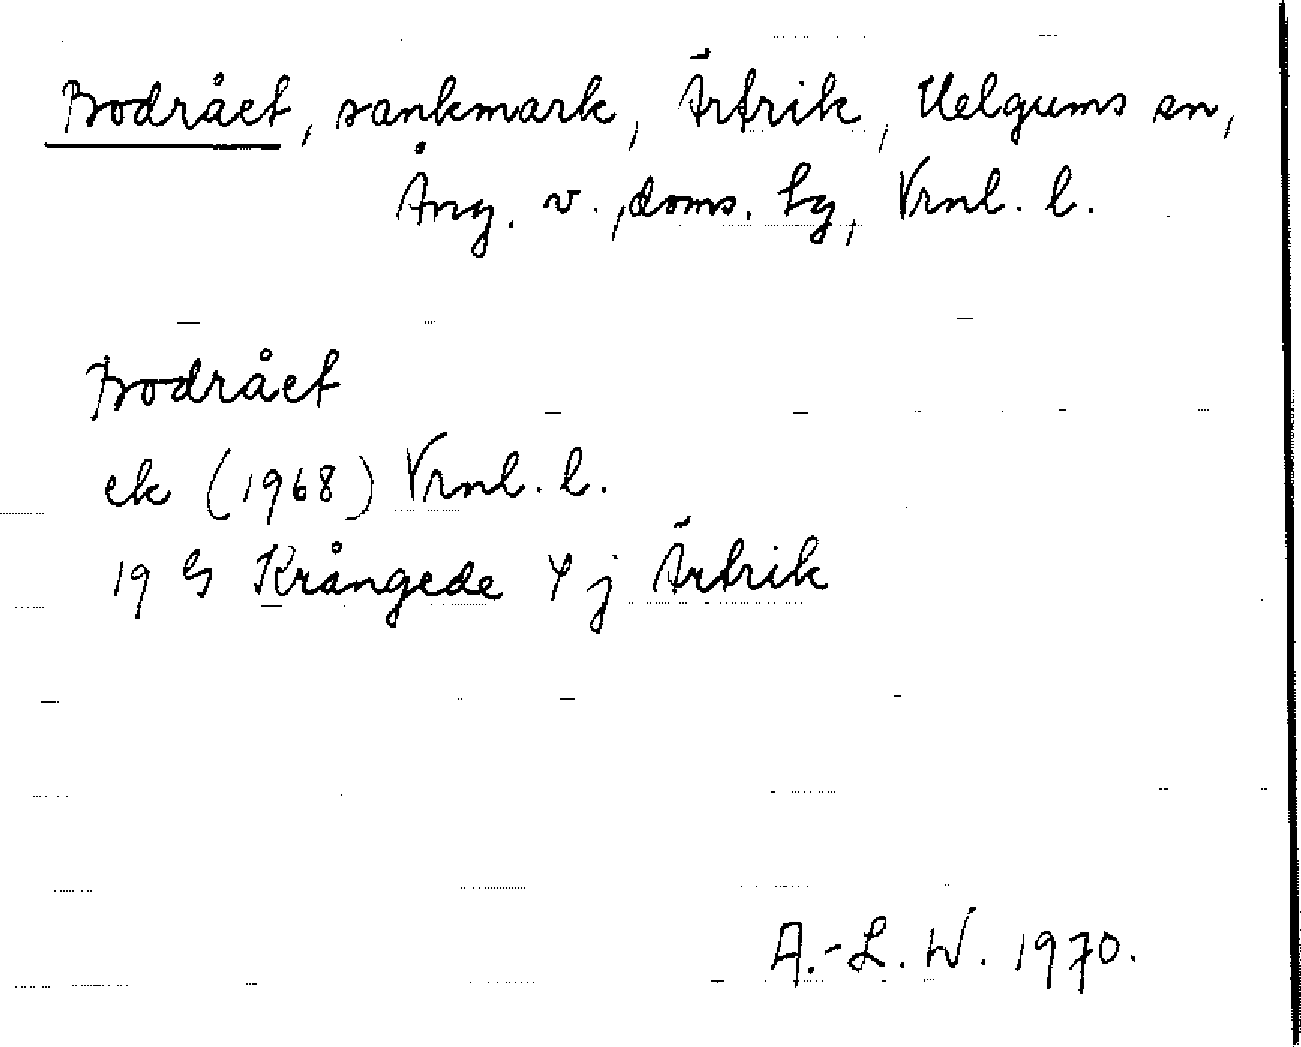 Bodrået, sankmark, Ärtrik, Helgums sn,
Ång. v., doms. Lg, Vrnl. l.
Bodrået
ek (1968) Vrnl. l.
19 G Krångede 4 j Ärtrik
A.-L. W. 1970.